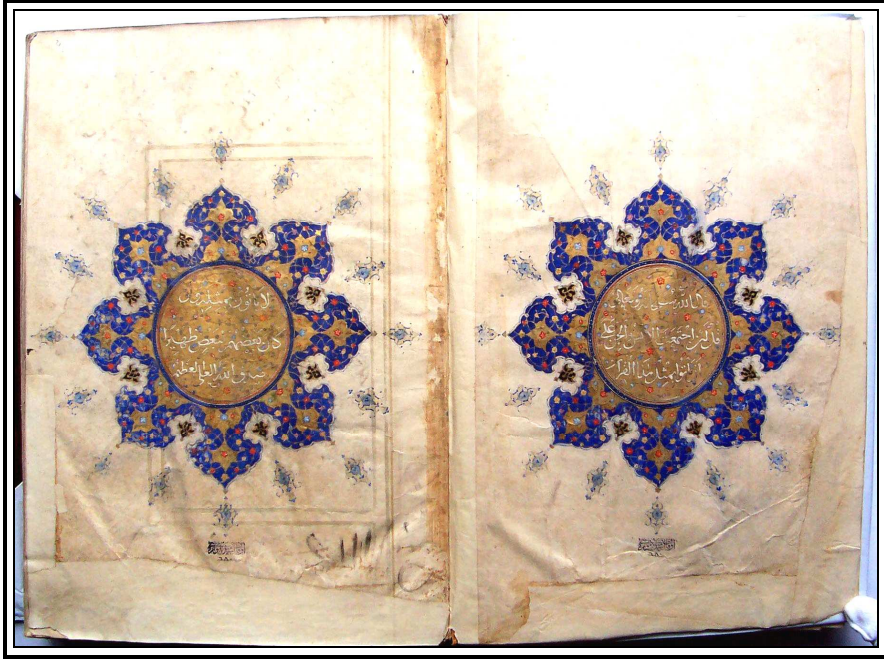 قال الله وتعالى
قل لئن اجتمعت الانس والجن على
ان يأتوا بمثل هذا القرآن
لا يأتون بمثله ولو
كان بعضهم لبعض ظهيرا
صدق الله العلي العظيم